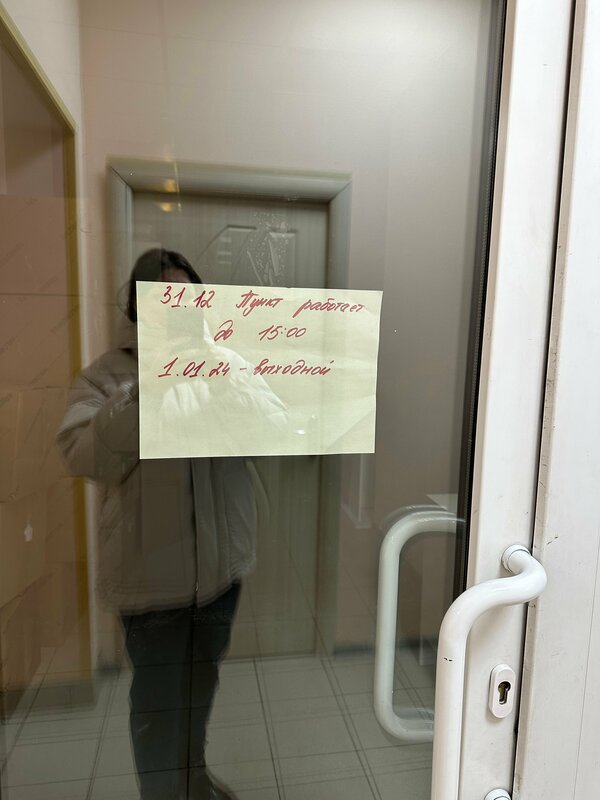 31.12 Пункт работает
до 15:00
1.01.24 - выходной